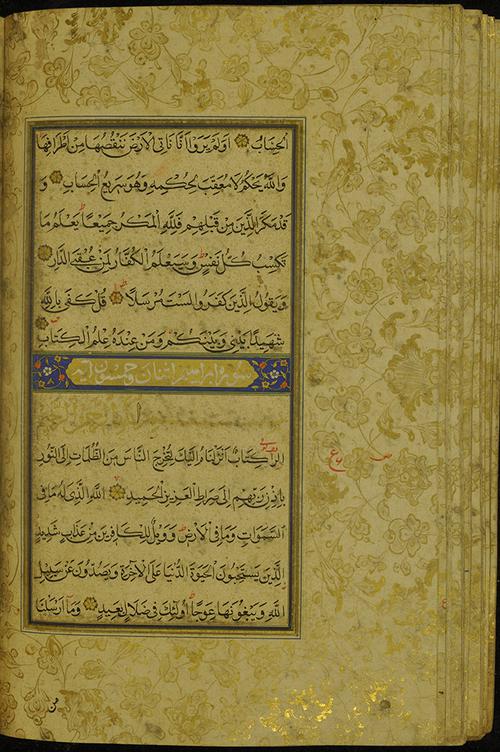 الحساب اولم يروا انا ناتى الارض ننقصها من اطرافها
والله يحكم لا معقب لحكمه وهو سريع الحساب و
قد مكر الذين من قبلهم فلله المكر جميعا يعلم ما
تكسب كل نفس وسيعلم الكفار لمن عقبى الدار
ويقول الذين كفروا لست مرسلا قل كفى بالله
شهيدا بينى وبينكم ومن عنده علم الكتاب
سورة ابراهيم اثنان وخمسون آية
الر كتاب انزلناه اليك لتخرج الناس من الظلمات الى النور
باذن ربهم الى صراط العزيز الحميد الله الذى له ما فى
السموات وما فى الارض وويل للكافرين من عذاب شديد
الذين يستحبون الحيوة الدنيا على الآخرة ويصدون عن سبيل
الله ويبغونها عوجا اولئك فى ضلال بعيد وما ارسلنا
من